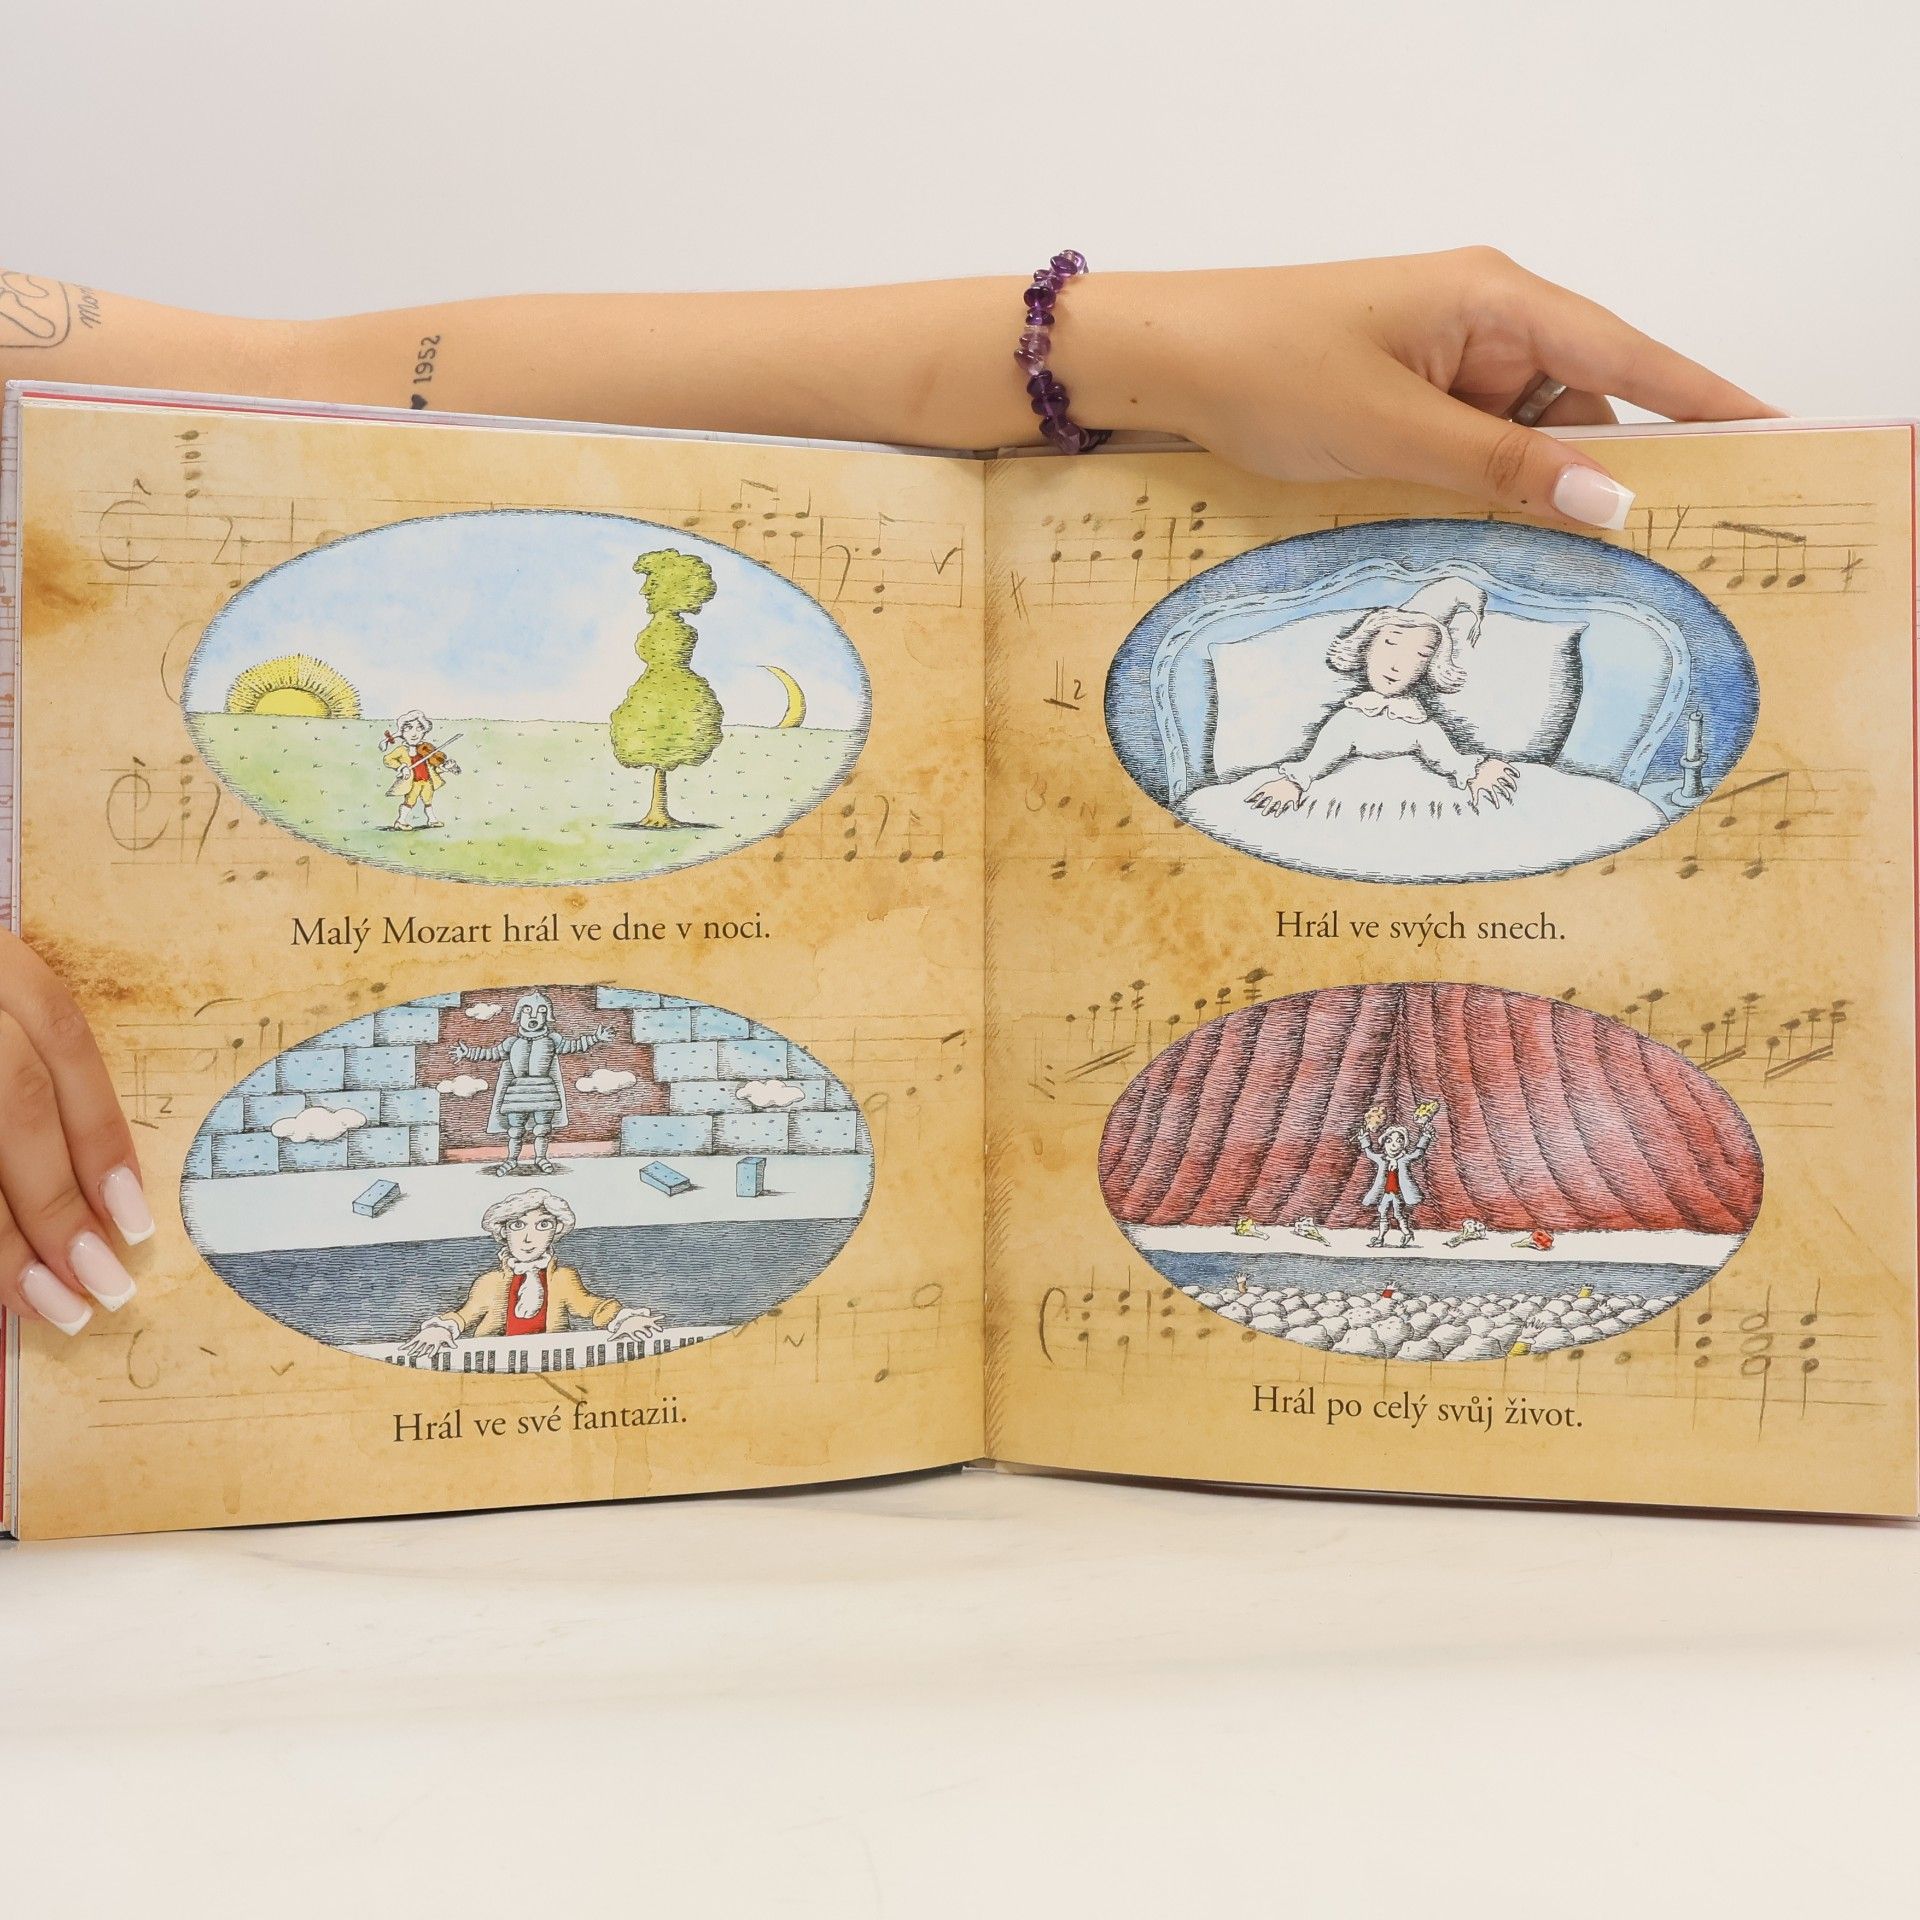 1952
Malý Mozart hrál ve dne v noci.
Hrál ve své fantazii.
Hrál ve svých snech.
Hrál po celý svůj život.